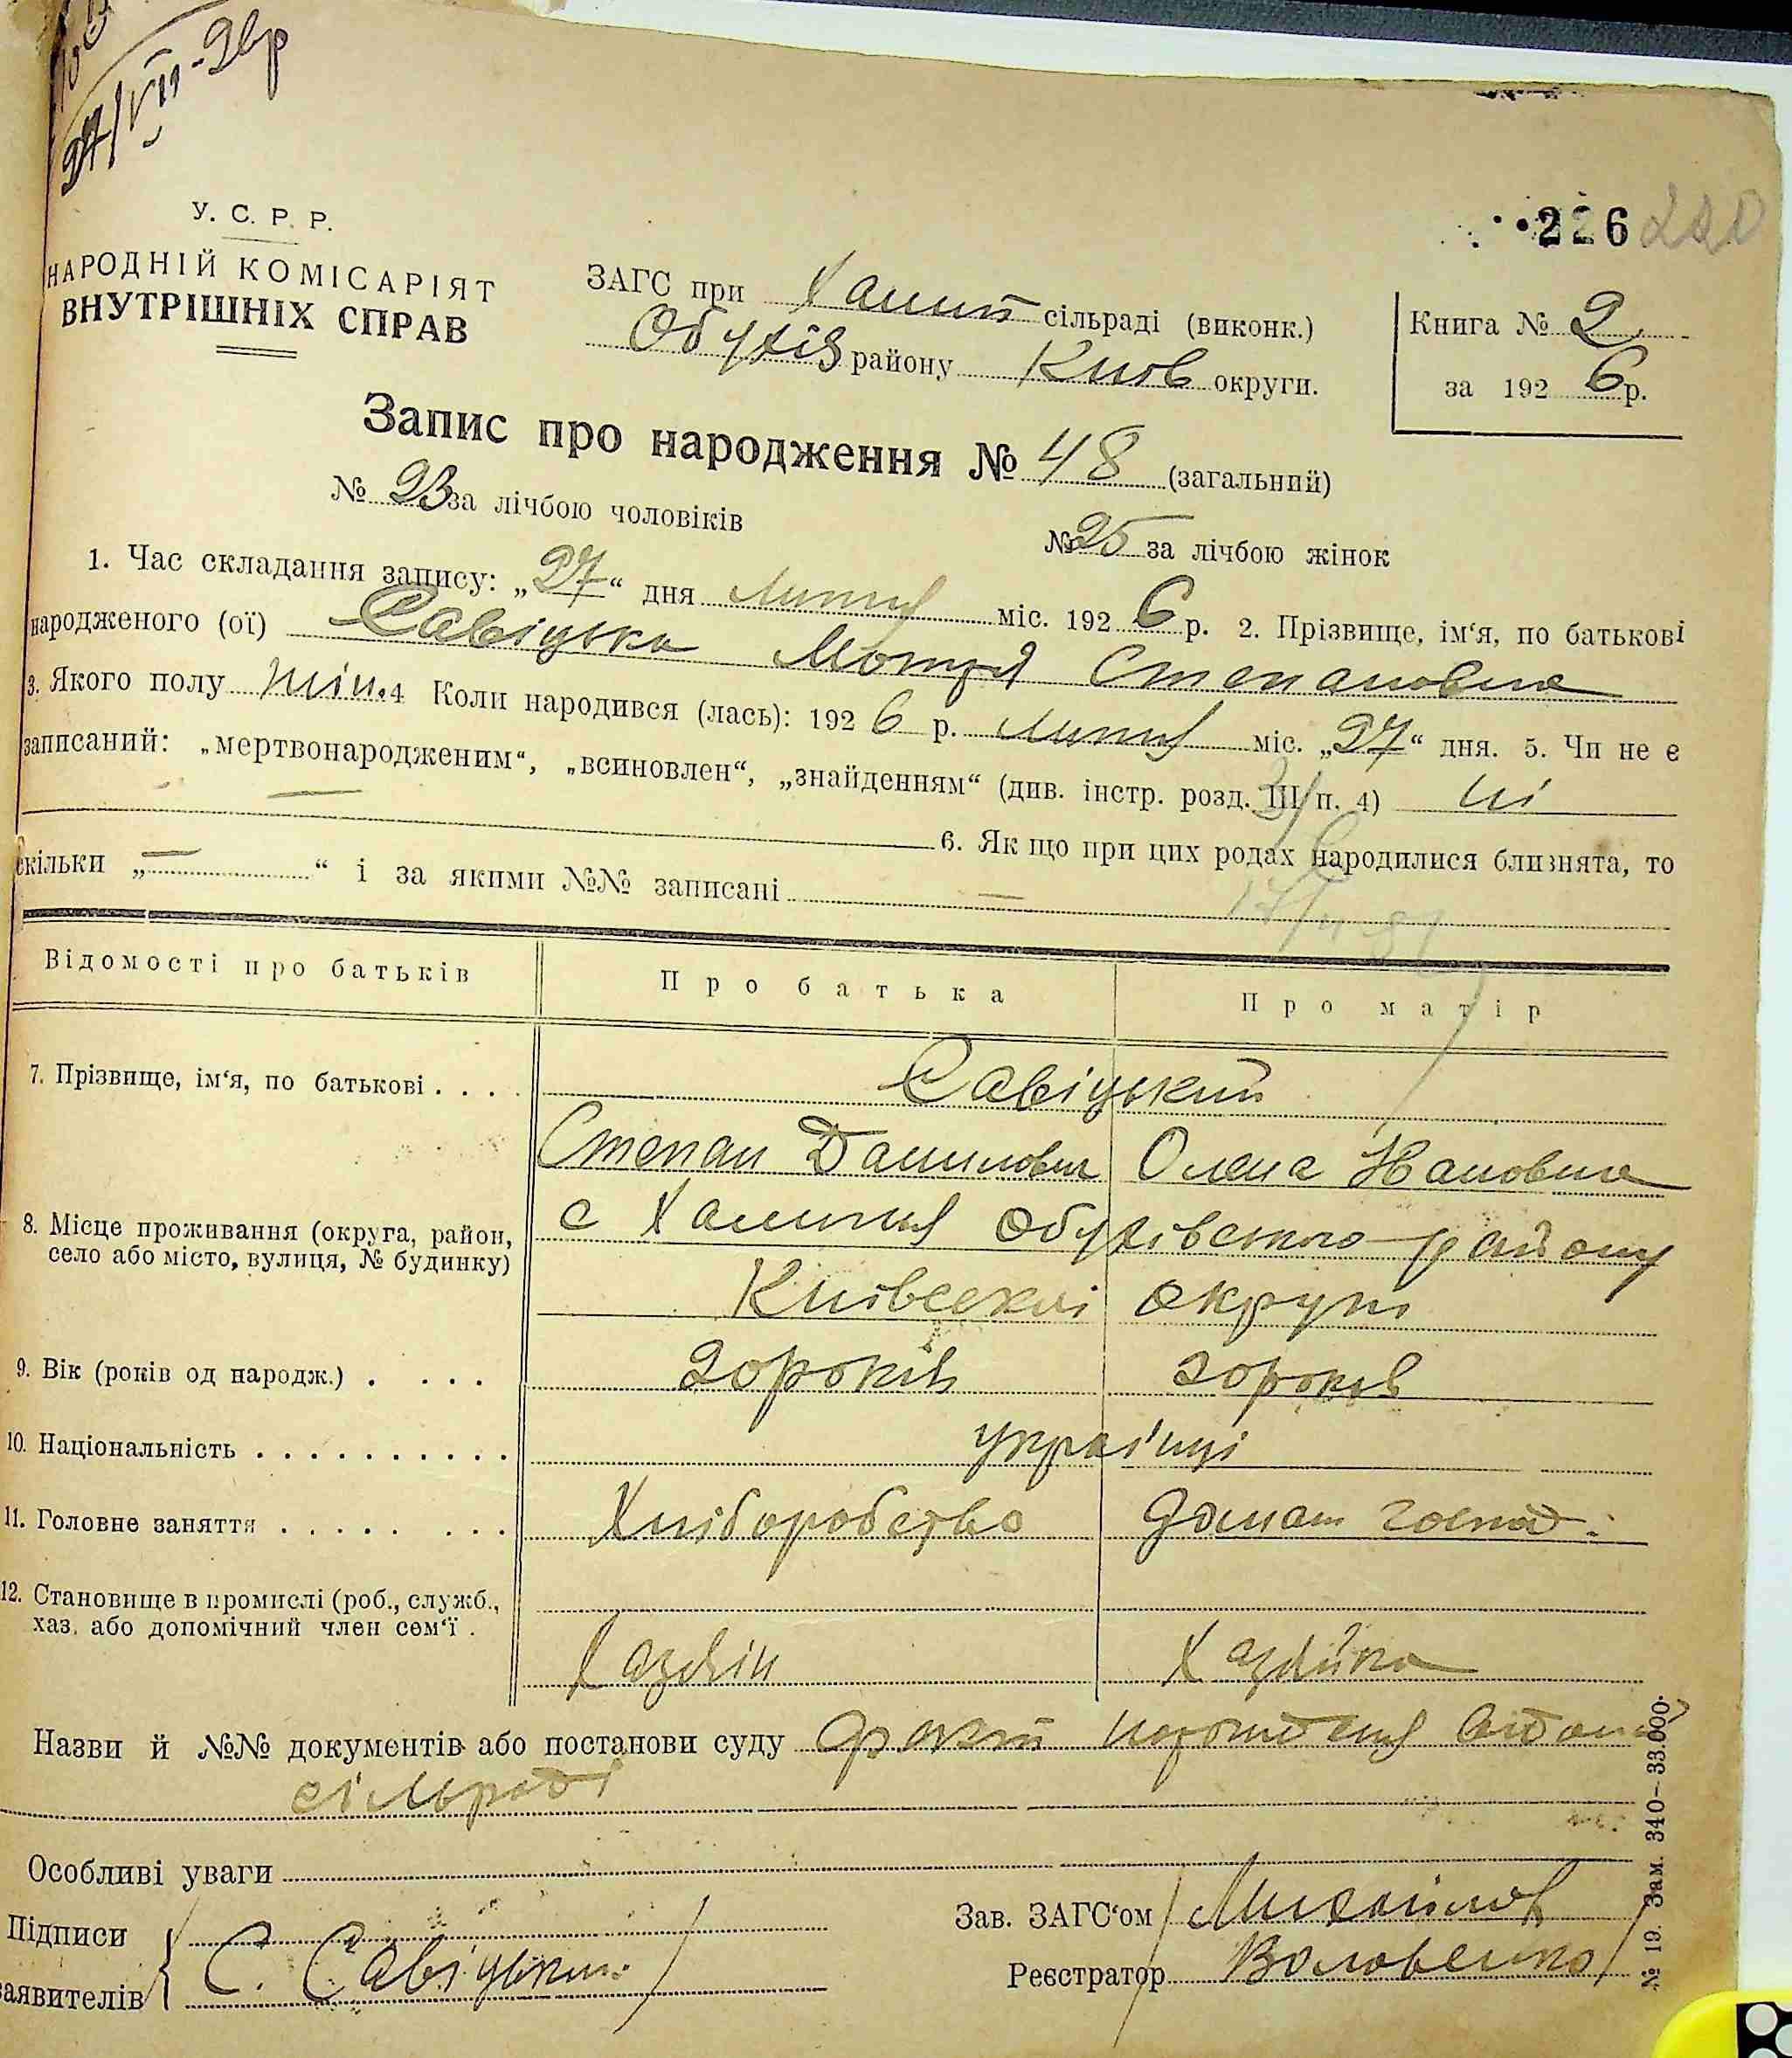 27/VII-26р
У. С. Р. Р.
НАРОДНІЙ КОМІСАРІЯТ
ВНУТРІШНІХ СПРАВ
226 220
ЗАГС при Халип сільраді (виконк.)
Обухів району Київ округи.
Книга № 2
за 192 6 р.
Запис про народження № 48 (загальний)
№ 23 за лічбою чоловіків
№ 25 за лічбою жінок
1. Час складання запису: „27“ дня Липня міс. 192 6 р. 2. Прізвище, ім‘я, по батькові
народженого (ої) Савіцька Мотря Степановна
3. Якого полу жін. 4 Коли народився (лась): 192 6 р. Липня міс. „27“ дня. 5. Чи не є
записаний: „мертвонародженим“, „всиновлен“, „знайденням“ (див. інстр. розд. III п. 4) ні
6. Як що при цих родах народилися близнята, то
скільки „—“ і за якими №№ записані —
Відомості про батьків
Про батька
Про матір
7. Прізвище, ім‘я, по батькові . . . .
Савіцький
Степан Данилович Олена Івановна
8. Місце проживання (округа, район,
село або місто, вулиця, № будинку)
с Халипя Обухівського району
Київської округи
9. Вік (років од народж.) . . . .
20 років 20 років
10. Національність . . . . . . . . . .
україці
11. Головне заняття . . . . . . . .
Хліборобство Домаш господ.
12. Становище в промислі (роб., служб.,
хаз. або допомічний член сем‘ї .
Хазяін Хазяйка
Назви й №№ документів або постанови суду факт народження
сільраді
Особливі уваги
Підписи
заявителів
С. Савіцький
Зав. ЗАГС‘ом Михайлов
Реєстратор
№ 19. Зам. 340—33.000.